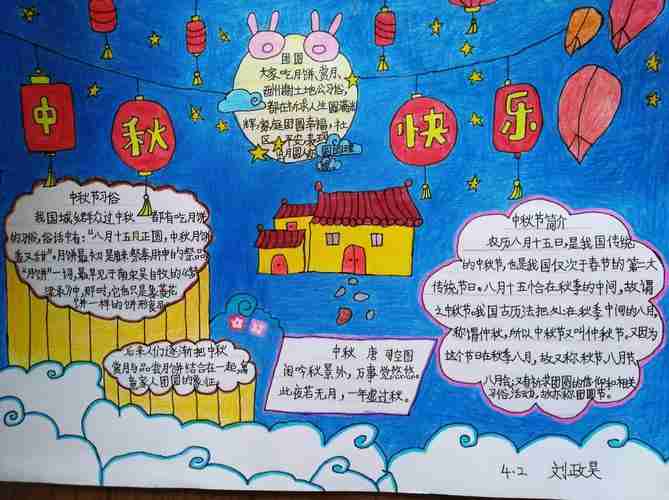 中秋快乐
团圆
大家吃月饼、赏月、
都在祈求人生圆满
辉,家庭团圆幸福,社
中秋节习俗
我国城乡群众过中秋都有吃月饼
的习俗,俗话中有:“八月十五月正圆,中秋月饼
香又甜”。月饼最初是用来祭奉月神的祭品
“月饼”一词,最早见于南宋吴自牧的《梦
梁录》中,那时,它也只是象菱花
饼一样的饼形食品
后来人们逐渐把中秋
赏月与品尝月饼结合在一起,寓
意家人团圆的象征。
中秋 唐 司空图
闲吟秋景外,万事觉悠悠
此夜若无月,一年虚过秋。
中秋节简介
农历八月十五日,是我国传统
的中秋节,也是我国仅次于春节的第二大
传统节日。八月十五恰在秋季的中间,故谓
之中秋节。我国古历法把处在秋季中间的八月,
称谓仲秋,所以中秋节又叫仲秋节。又因为
这个节日在秋季八月,故又称秋节、八月节、
八月会;又有祈求团圆的信仰和相关
习俗活动,故亦称团圆节。
4.2 刘政昊